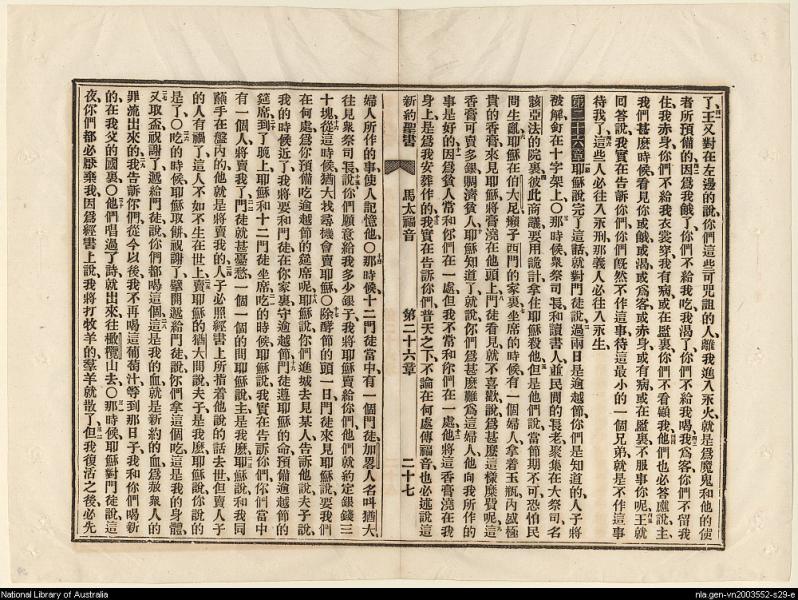 了王又對在左邊的說你們這些可咒詛的人離我進入永火就是爲魔鬼和他的使
者所預備的因爲我餓了你們不給我吃我渴了你們不給我喝我爲客你們不留我
住我赤身你們不給我衣裳穿我有病或在監裏你們不看顧我他們也必答應說主
我們甚麼時候看見你或餓或渴或爲客或赤身或有病或在監裏不服事你呢王就
回答說我實在告訴你們你們旣然不作這事待這最小的一個兄弟就是不作這事
待我了這些人必往入永刑那義人必往入永生
第二十六章耶穌說完了這話就對門徒說過兩日是逾越節你們是知道的人子將
被解釘在十字架上〇那時候衆祭司長和讀書人並民間的長老聚集在大祭司名
該亞法的院裏彼此商議要用詭計拿住耶穌殺他但是他們說當節期不可恐怕民
間生亂耶穌在伯大尼癩子西門的家裏坐席的時候有一個婦人拿着玉瓶內盛極
貴的香膏來見耶穌將膏澆在他頭上門徒看見就不喜歡說爲甚麼這樣糜費呢這
香膏可賣多銀賙濟貧人耶穌知道了就說你們爲甚麼難爲這婦人他向我所作的
事是好的因爲貧人常和你們在一處但我不常和你們在一處他將這香膏澆在我
身上是爲我安葬作的我實在告訴你們普天之下不論在何處傳福音也必述說這
新約聖書 馬太福音 第二十六章 二十七
婦人所作的事使人記憶他〇那時候十二門徒當中有一個門徒加畧人名叫猶大
往見衆祭司長說你們願意給我多少銀子我將耶穌賣給你們他們就約定銀錢三
十塊從這時候猶大找尋機會賣耶穌〇除酵節的頭一日門徒來見耶穌說要我們
在何處爲你預備吃逾越節的筵席呢耶穌說你們進城去見某人告訴他說夫子說
我的時候近了我將要和門徒在你家裏守逾越節門徒遵耶穌的命預備逾越節的
筵席到了晚上耶穌和十二門徒坐席吃的時候耶穌說我實在告訴你們你們當中
有一個人將賣我了門徒就甚憂愁一個一個的問耶穌說主是我麼耶穌說和我同
蘸手在盤內的他就是將賣我的人子必照經書上所指着他說的話去世但賣人子
的人有禍了這人不如不生在世上賣耶穌的猶大問說夫子是我麼耶穌說你說的
是了〇吃的時候耶穌取餅祝謝了擘開遞給門徒說你們拿這個吃這是我的身體
又取盃祝謝了遞給門徒說你們都喝這個這是我的血就是新約的血爲衆人的
罪流出來的我告訴你們從今以後我不再喝這葡萄汁等到那日子我和你們喝新
的在我父的國裏〇他們唱過了詩就出來往橄欖山去〇那時候耶穌對門徒說這
夜你們都必厭棄我因爲經書上說我將打牧羊的羣羊就散了但我復活之後必先
National Library of Australia
nla.gen-vn2003552-s29-e